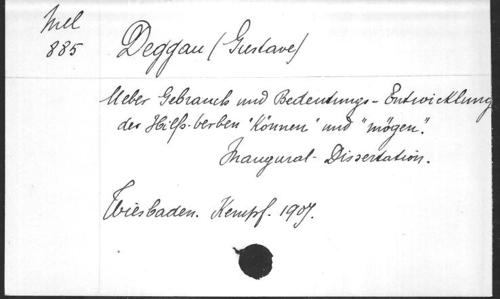 Mel
885
Deggau (Gustave)
Ueber Gebrauch und Bedeutungs-Entwicklung
der Hilfs-verben "Können" und "mögen".
Inaugural-Dissertation.
Wiesbaden. Kempf. 1907.